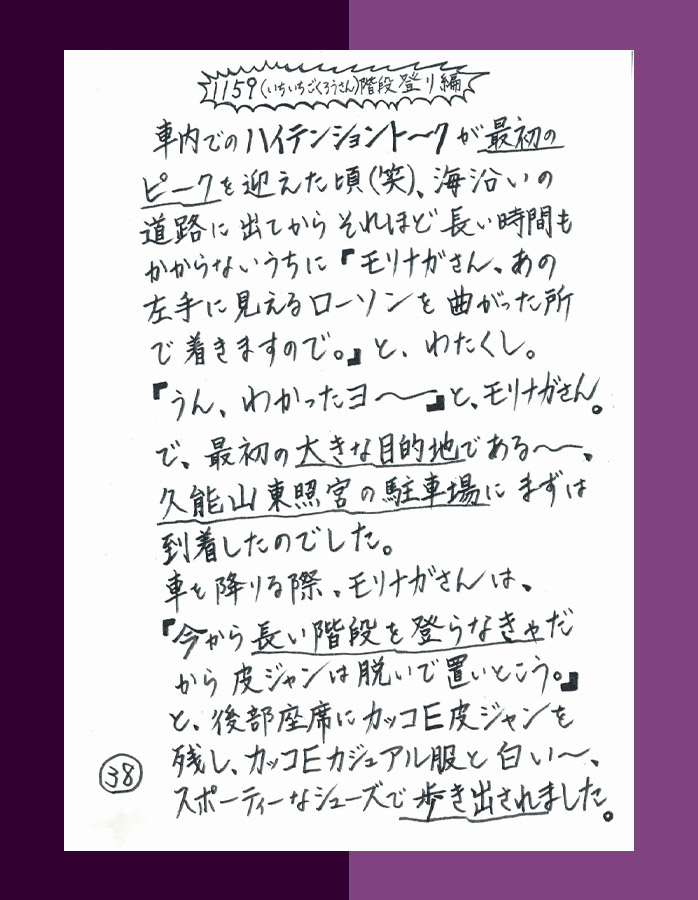 1159(いちいちごくろうさん)階段登り編
車内でのハイテンショントークが最初の
ピークを迎えた頃(笑)、海沿いの
道路に出てからそれほど長い時間も
かからないうちに『モリナガさん、あの
左手に見えるローソンを曲がった所
で着きますので。』と、わたくし。
『うん、わかったヨ〜』と、モリナガさん。
で、最初の大きな目的地である〜、
久能山東照宮の駐車場にまずは
到着したのでした。
車を降りる際、モリナガさんは、
『今から長い階段を登らなきゃだ
から皮ジャンは脱いで置いとこう。』
と、後部座席にカッコE皮ジャンを
残し、カッコEカジュアル服と白い〜、
スポーティーなシューズで歩き出されました。
38